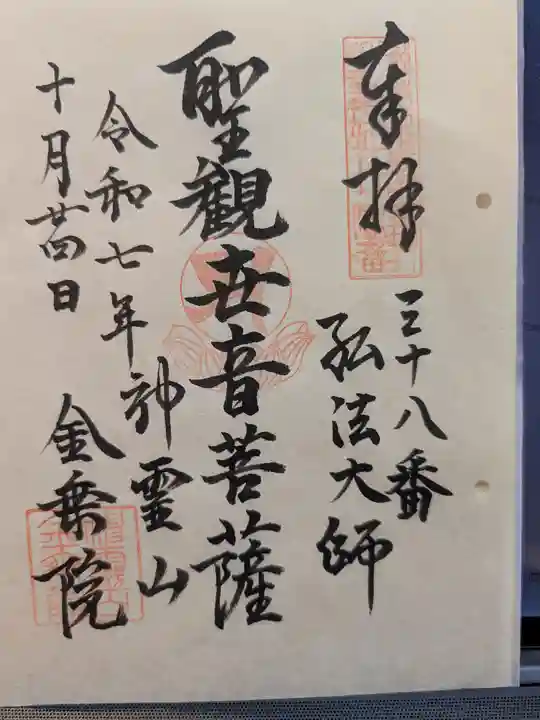 奉拝
三十八番
弘法大師
聖観世音菩薩
神霊山
金乗院
令和七年
十月廿四日